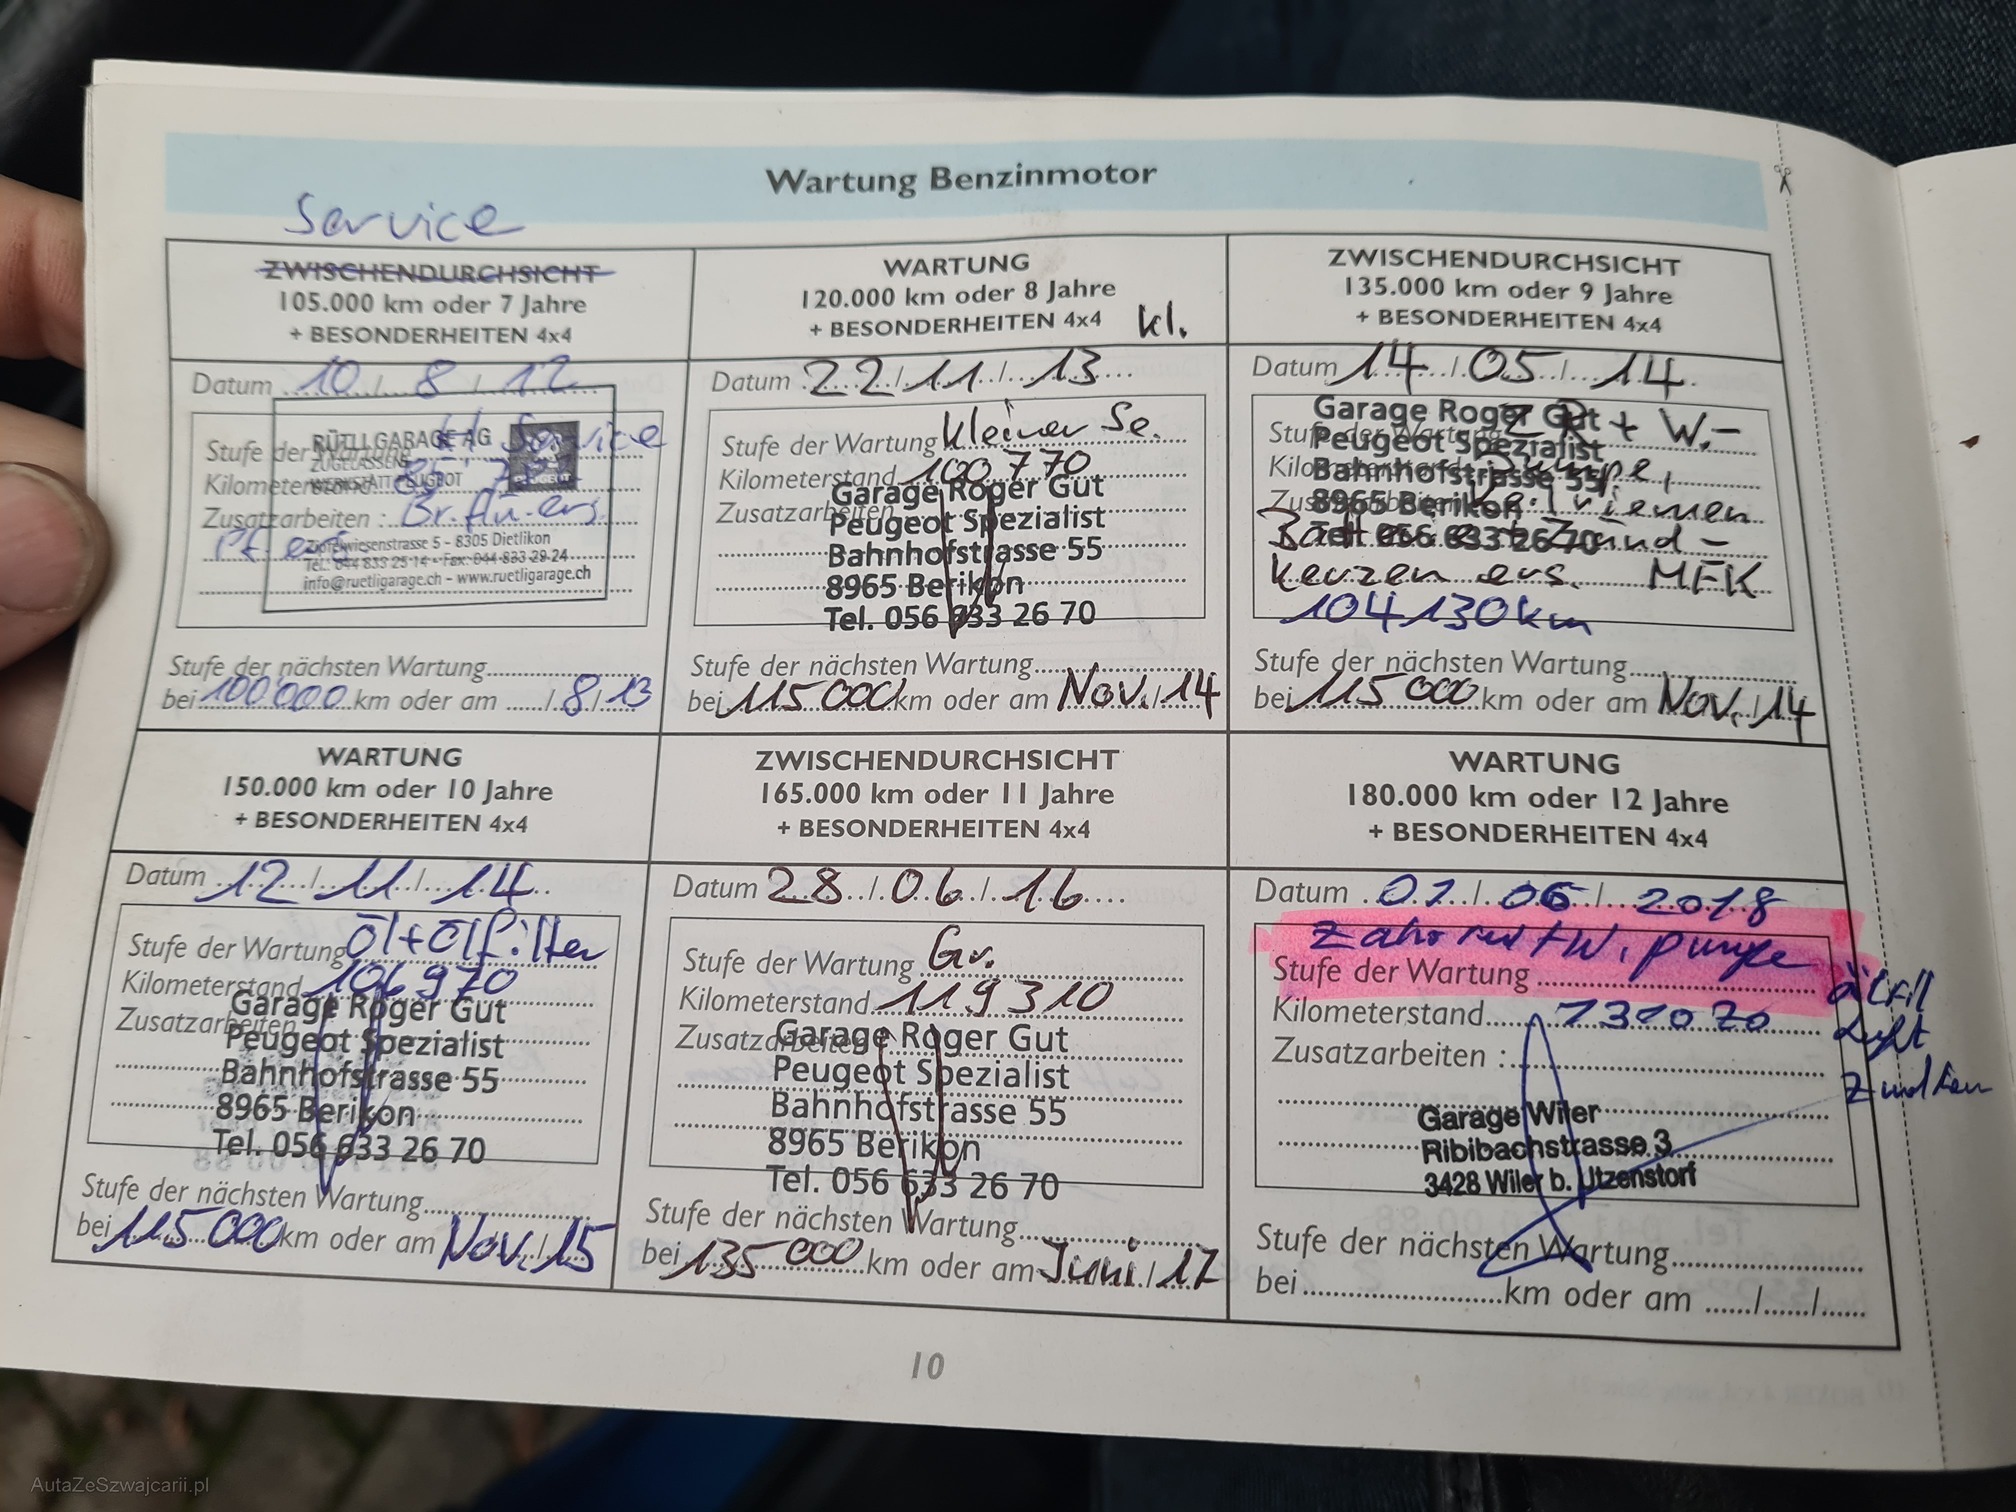 Wartung Benzinmotor
Service
ZWISCHENDURCHSICHT
105.000 km oder 7 Jahre
+ BESONDERHEITEN 4x4
Datum 10 / 8 / 12
Stufe der Wartung kl Service
RÜTLI GARAGE AG
ZUGELASSENE
WERKSTATT PEUGEOT
Kilometerstand
Zusatzarbeiten : Br.flü. ers.
Zipfelwiesenstrasse 5 - 8305 Dietlikon
Tel.: 044 833 25 14 - Fax: 044 833 29 24
info@ruetligarage.ch - www.ruetligarage.ch
Stufe der nächsten Wartung
bei 100000 km oder am / 8 / 13
WARTUNG
120.000 km oder 8 Jahre
+ BESONDERHEITEN 4x4 kl.
Datum 22 / 11 / 13
Stufe der Wartung kleiner Se.
Kilometerstand 100770
Zusatzarbeiten
Garage Roger Gut
Peugeot Spezialist
Bahnhofstrasse 55
8965 Berikon
Tel. 056 633 26 70
Stufe der nächsten Wartung
bei 115000 km oder am Nov. / 14
ZWISCHENDURCHSICHT
135.000 km oder 9 Jahre
+ BESONDERHEITEN 4x4
Datum 14 / 05 / 14
Garage Roger Gut
Stufe der Wartung ZR + W.-
Peugeot Spezialist
Kilometerstand Pumpe,
Bahnhofstrasse 55
Zusatzarbeiten Keilriemen
8965 Berikon
Tel. 056 633 26 70
Zünd-
kerzen ers. MFK
104130 km
Stufe der nächsten Wartung
bei 115000 km oder am Nov. / 14
WARTUNG
150.000 km oder 10 Jahre
+ BESONDERHEITEN 4x4
Datum 12 / 11 / 14
Stufe der Wartung Öl + Ölfilter
Kilometerstand 106970
Zusatzarbeiten
Garage Roger Gut
Peugeot Spezialist
Bahnhofstrasse 55
8965 Berikon
Tel. 056 633 26 70
Stufe der nächsten Wartung
bei 115000 km oder am Nov. / 15
ZWISCHENDURCHSICHT
165.000 km oder 11 Jahre
+ BESONDERHEITEN 4x4
Datum 28 / 06 / 16
Stufe der Wartung Gr.
Kilometerstand 119310
Zusatzarbeiten
Garage Roger Gut
Peugeot Spezialist
Bahnhofstrasse 55
8965 Berikon
Tel. 056 633 26 70
Stufe der nächsten Wartung
bei 135000 km oder am Juni / 17
WARTUNG
180.000 km oder 12 Jahre
+ BESONDERHEITEN 4x4
Datum 01 / 06 / 2018
+ W. pumpe
Stufe der Wartung
Kilometerstand 131070
Luft
Zusatzarbeiten :
Garage Wiler
Ribibachstrasse 3
3428 Wiler b. Utzenstorf
Stufe der nächsten Wartung
bei km oder am / /
10
AutaZeSzwajcarii.pl